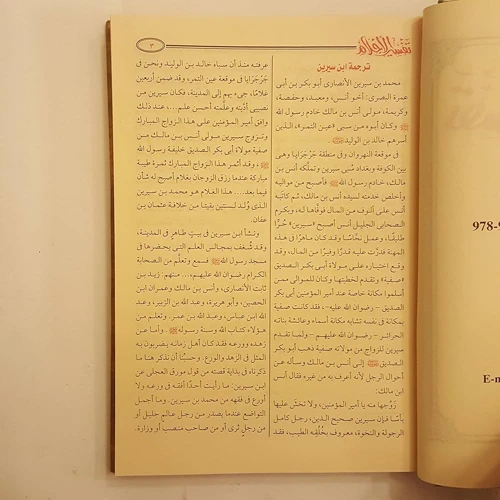 ٣
تفسير الأحلام
ترجمة ابن سيرين
محمد بن سيرين الأنصارى أبو بكر بن أبى
عمرة البصرى: أخو أنس، ومعبد، وحفصة،
وكريمة، مولى أنس بن مالك خادم رسول الله
ﷺ وكان أبوه من سبى «عين التمر»، الذين
أسرهم خالد بن الوليد
فى موقعة النهروان وفى منطقة جَرْجَرَايا وهى
بين الكوفة وبغداد سُبى سيرين وتملَّكه أنس بن
مالك، خادم رسول الله ﷺ فأصبح من مواليه
وأخلص خدمته لسيده أنس بن مالك، ثم كاتبه
أنس على ألوف من المال فوفَّاها له، وبكرم
الصحابى الجليل أنس أصبح «سيرين» حُرًّا
طليقًا، وعمل نحَّاسًا وقد كان ماهرًا فى هذه
المهنة فدرَّت عليه قدرًا وفرًا من المال، وقد
وقع اختياره على مولاة أبى بكر الصديق
«صفية» وتقدم لخطبتها وكان للموالى ممن
أسلموا مكانة خاصة عند أمير المؤمنين أبى بكر
الصديق - رضوان الله عليه-، فقد كانت صفية
بمكانة فى نفسه تشابه مكانة أسماء وعائشة بناته
الحرائر - رضوان الله عليهم - ولمَّا تقدم
سيرين للزواج من مولاته صفية ذهب أبو بكر
الصديق إلى أنس بن مالك وسأله عن
أحوال الرجل لأنه أعرف به من غيره فقال أنس
ابن مالك:
زَوِّجها منه يا أمير المؤمنين، ولا تخشَ عليها
بأسًا فإن سيرين صحيح الدين، رجل كامل
الرجولة والنخوة، معروف بخُلُقِه الطيب، فقد
عرفته منذ أن سباه خالد بن الوليد ونحن فى
جَرْجَرَايا فى موقعة عين التمر، وقد ضمن أربعين
غلامًا، جىء بهم إلى المدينة، فكان سيرين من
نصيبى أدَّبته وعلَّمته أحسن علم...، عند ذلك
وافق أمير المؤمنين على هذا الزواج المبارك
وتزوج سيرين مولى أنس بن مالك من
صفية مولاة أبى بكر الصديق خليفة رسول الله
ﷺ، وقد أثمر هذا الزواج المبارك ثمرة طيبة
مباركة عندما رزق الزوجان بغلام أصبح له شأن
فيما بعد...، هذا الغلام هو محمد بن سيرين
الذى وُلد لسنتين بقيتا من خلافة عثمان بن
عفان.
ونشأ ابن سيرين فى بيتٍ طاهرٍ فى المدينة،
وقد شُغف بمجالس العلم التى يحضرها فى
مسجد رسول الله ﷺ فسمع وتعلَّم من الصحابة
الكرام رضوان الله عليهم،... منهم: زيد بن
ثابت الأنصارى، وأنس بن مالك وعمران ابن
الحصين، وأبو هريرة، وعبد الله بن الزبير، وعبد
الله ابن عباس، وعبد الله بن عمر. وتعلم من
هؤلاء كتاب الله وسنة رسوله ﷺ. وأما عن
زهده وورعه فقد كان أهل زمانه يضربون به
المثل فى الزهد والورع، وحسبُنا أن نذكر هنا ما
ذكرناه فى بداية قصته من قول مورق العجلى عن
ابن سيرين: ما رأيت أحدًا أفقه فى ورعه ولا
أورع فى فقهه من محمد بن سيرين. وما أجمل
التواضع عندما يصدر من رجل عالم جليل أو
من رجلٍ ثرى أو من صاحب منصب أو وزارة.
978-9
E-m